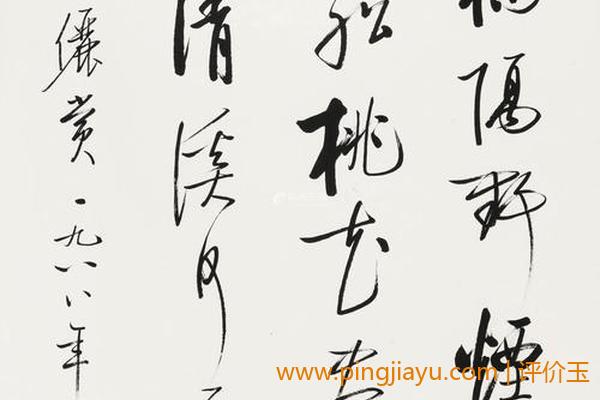 隔野煙
船桃花
清溪何
儷賞 一九八八年
www.pingjiayu.com | 评价玉